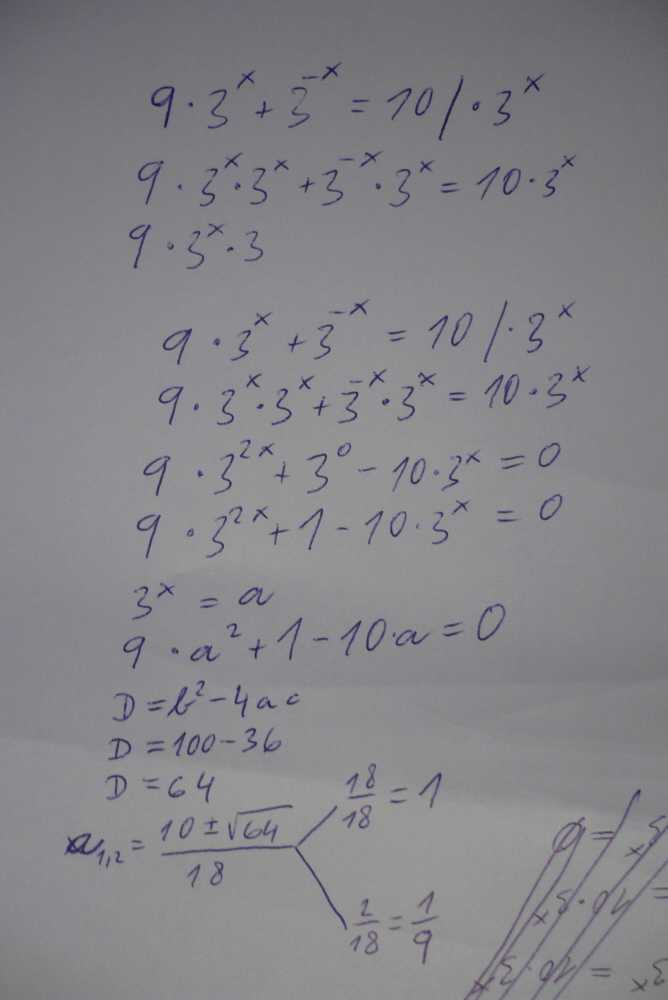 9 · 3^x + 3^-x = 10 / · 3^x
9 · 3^x · 3^x + 3^-x · 3^x = 10 · 3^x
9 · 3^x · 3
9 · 3^x + 3^-x = 10 / · 3^x
9 · 3^x · 3^x + 3^-x · 3^x = 10 · 3^x
9 · 3^2x + 3^0 - 10 · 3^x = 0
9 · 3^2x + 1 - 10 · 3^x = 0
3^x = a
9 · a^2 + 1 - 10 · a = 0
D = b^2 - 4ac
D = 100 - 36
D = 64
18/18 = 1
a_1,2 = (10 ± √64)/18
2/18 = 1/9